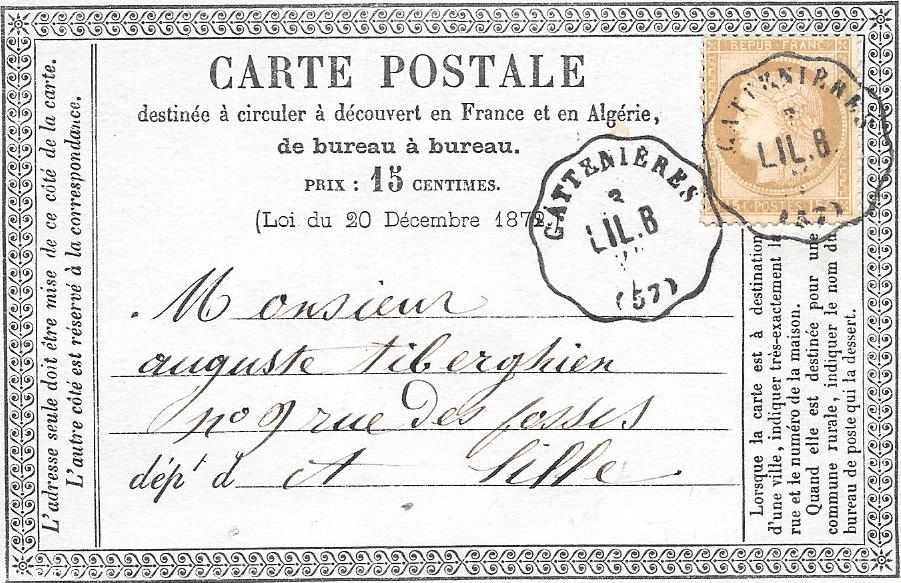 L'adresse seule doit être mise de ce côté de la carte.
L'autre côté est réservé à la correspondance.
CARTE POSTALE
destinée à circuler à découvert en France et en Algérie,
de bureau à bureau.
PRIX : 15 CENTIMES.
(Loi du 20 Décembre 1872
GATTENIÈRES
3
LIL.B
(57)
REPUB FRANC
15 C POSTES 15
GATTENIÈRES
LIL.B
(57)
Monsieur
auguste tiberghien
no 9 rue des fossés
dépt d A Lille
Lorsque la carte est à destination
d'une ville, indiquer très-exactement la
rue et le numéro de la maison.
Quand elle est destinée pour une
commune rurale, indiquer le nom du
bureau de poste qui la dessert.